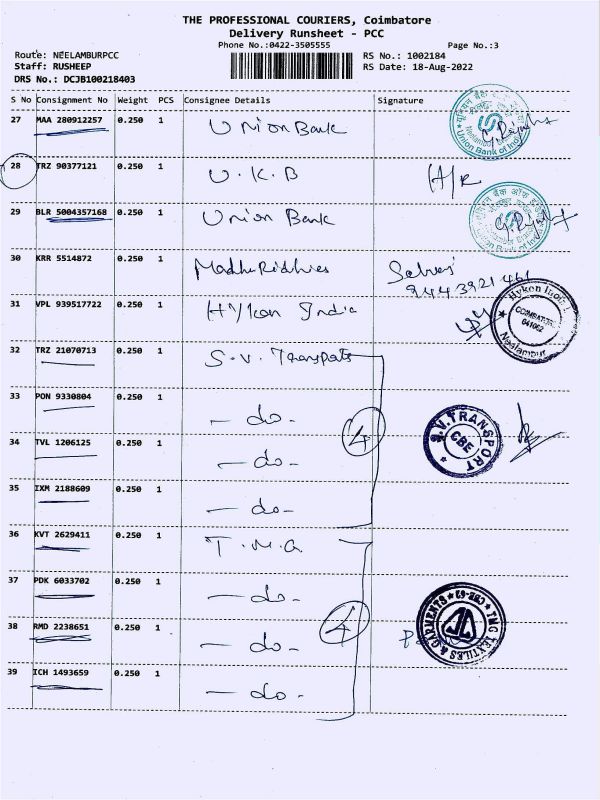 THE PROFESSIONAL COURIERS, Coimbatore
Delivery Runsheet - PCC
Phone No.:0422-3505555
Page No.:3
Route: NEELAMBURPCC
RS No.: 1002184
Staff: RUSHEEP
RS Date: 18-Aug-2022
DRS No.: DCJB100218403
S No Consignment No Weight PCS Consignee Details Signature
27 MAA 280912257 0.250 1 Union Bank
28 TRZ 90377121 0.250 1 U.K.B
29 BLR 5004357168 0.250 1 Union Bank
30 KRR 5514872 0.250 1 Selvaj
9443921461
31 VPL 939517722 0.250 1 Hykon India
Hykon India
COIMBATORE
641062
Neelambur
32 TRZ 21070713 0.250 1 S.V. Transports
33 PON 9330804 0.250 1 - do -
4
S.V.TRANSPORT
CBE
34 TVL 1206125 0.250 1 - do -
35 IXM 2188609 0.250 1 - do -
36 KVT 2629411 0.250 1 T.M.G
37 PDK 6033702 0.250 1 - do -
38 RMD 2238651 0.250 1 - do -
4
TMG TEXTILES & GARMENTS CBE-62
39 ICH 1493659 0.250 1 - do -